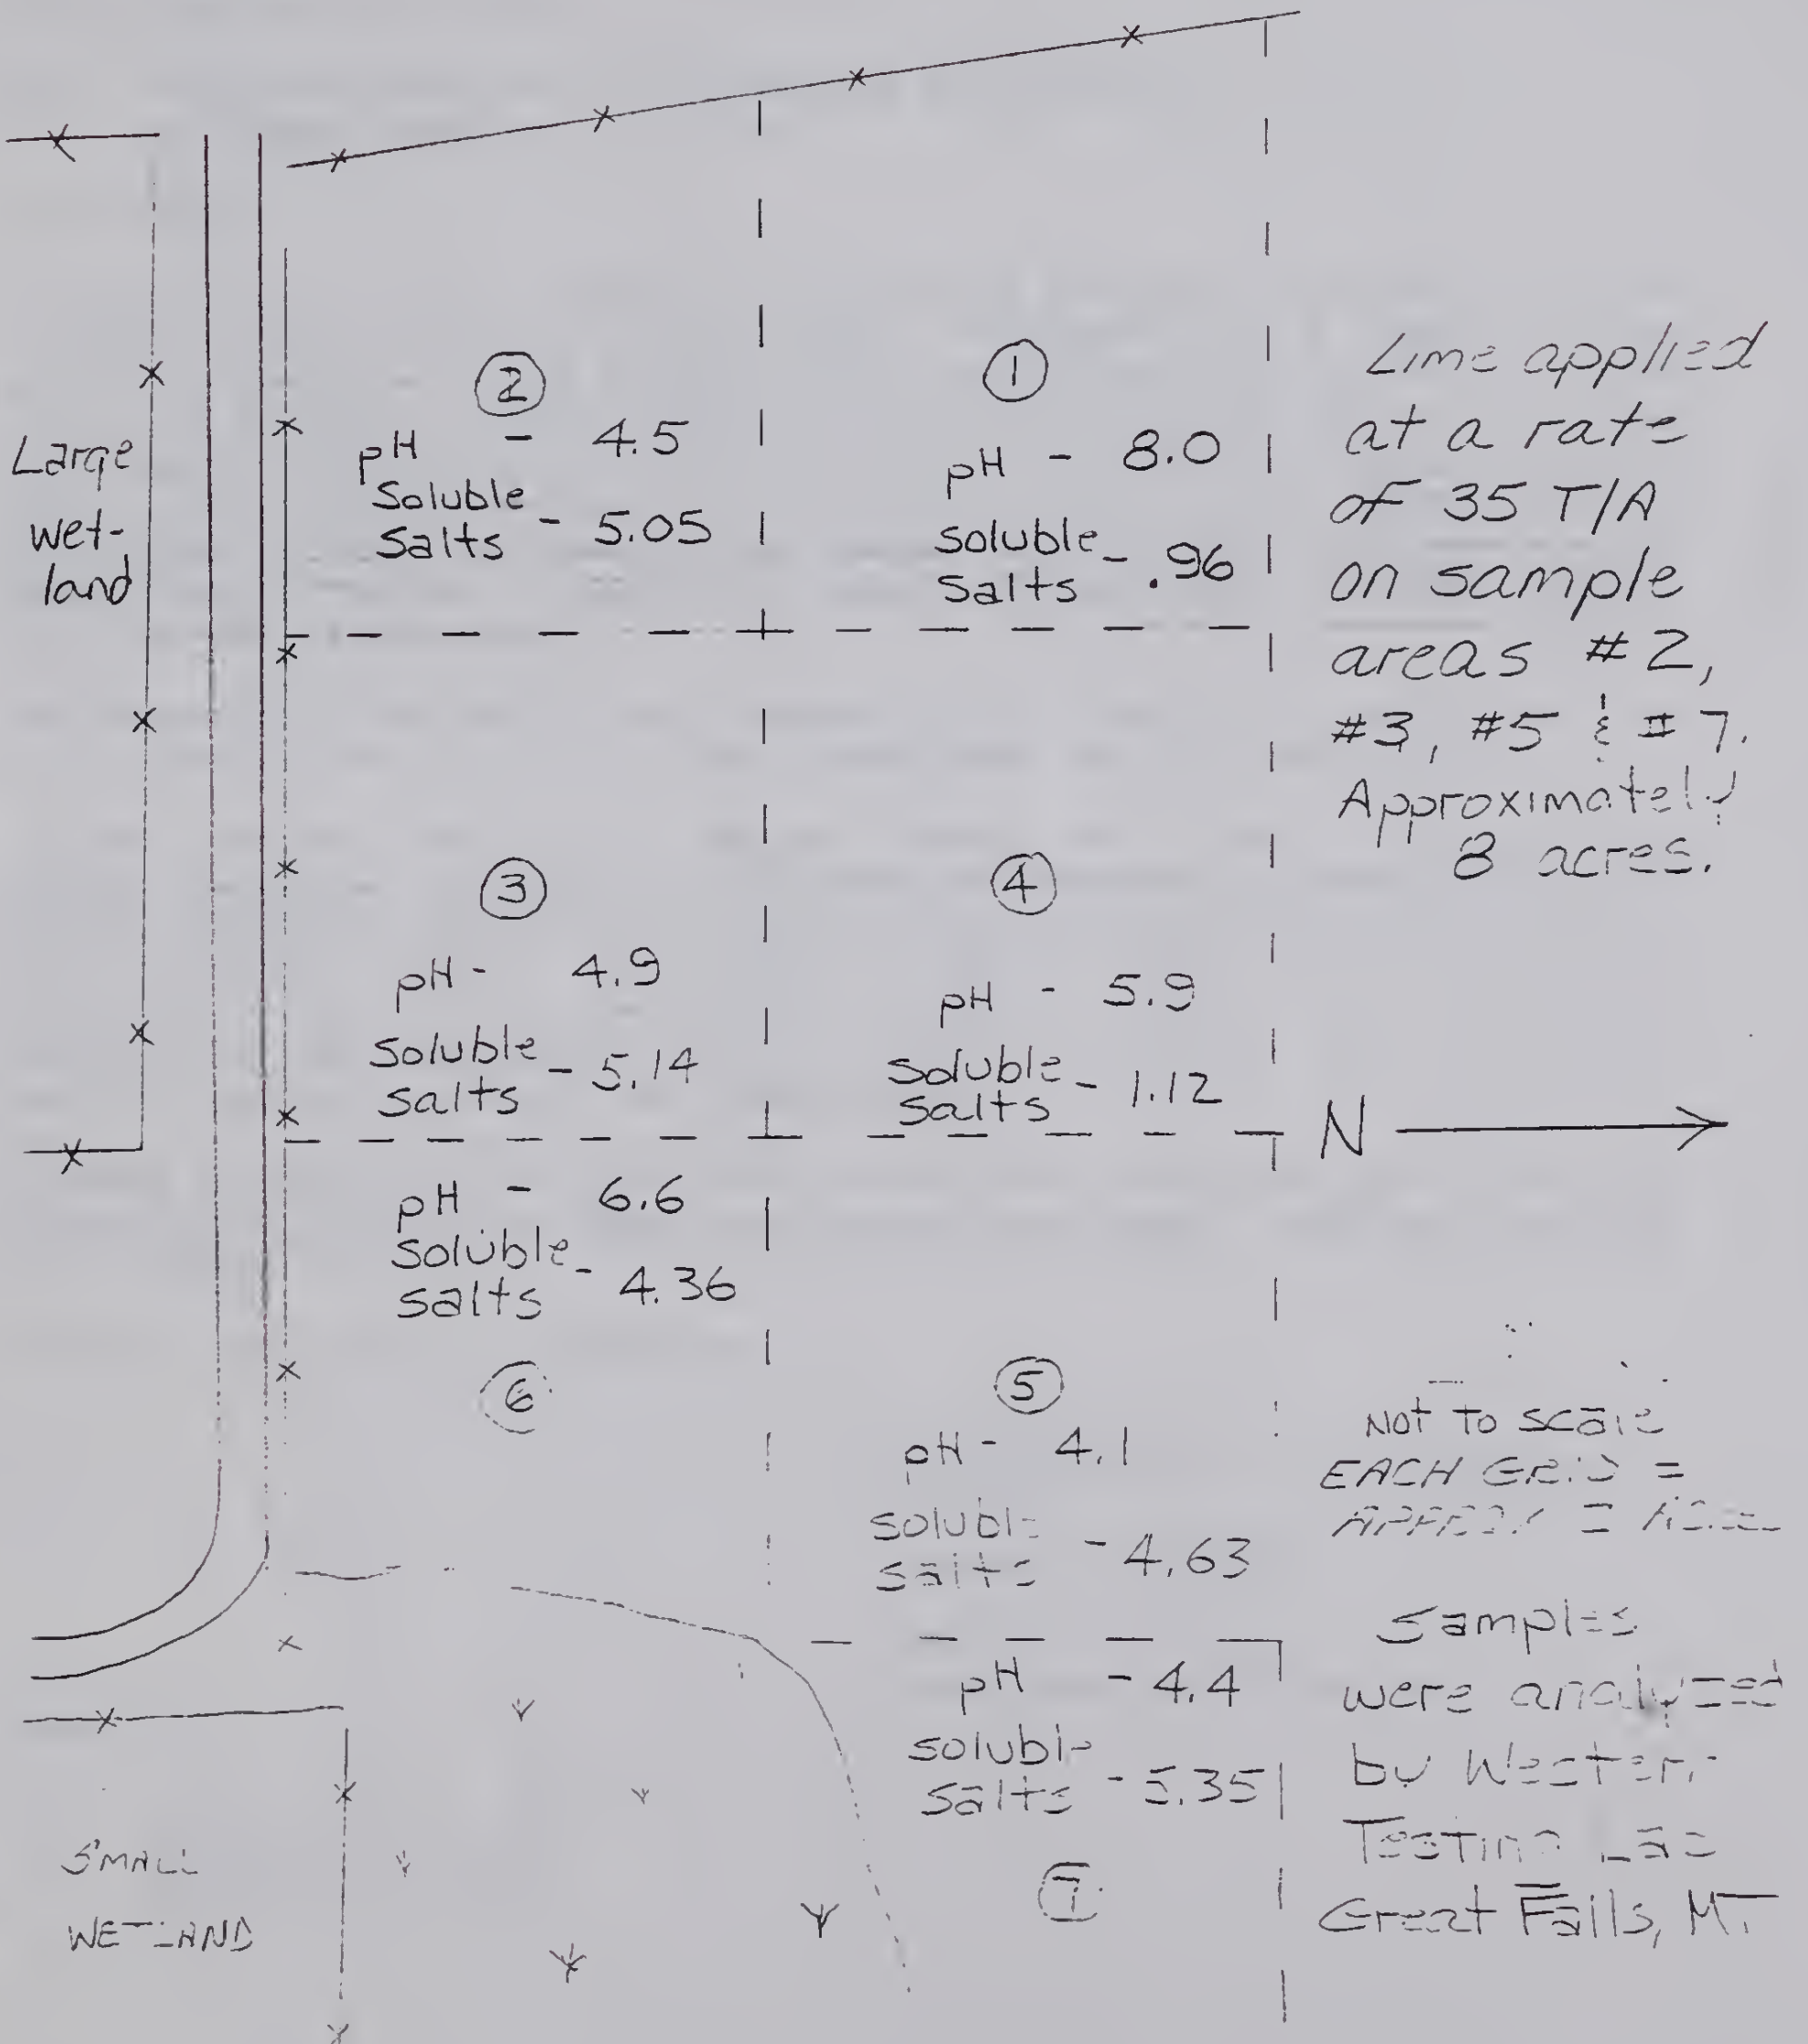 Large
wet-
land
②
pH - 4.5
Soluble
Salts - 5.05
①
pH - 8.0
soluble
Salts - .96
Lime applied
at a rate
of 35 T/A
on sample
areas #2,
#3, #5 & #7.
Approximately
8 acres.
③
pH - 4.9
Soluble
salts - 5.14
④
pH - 5.9
Soluble
Salts - 1.12
N
pH - 6.6
Soluble
salts - 4.36
⑥
⑤
pH - 4.1
soluble
salts - 4.63
Not to scale
EACH GRID =
APPROX
pH - 4.4
soluble
salts - 5.35
⑦
Samples
were analyzed
by Western
Testing Lab
Great Falls, MT
SMALL
WETLAND